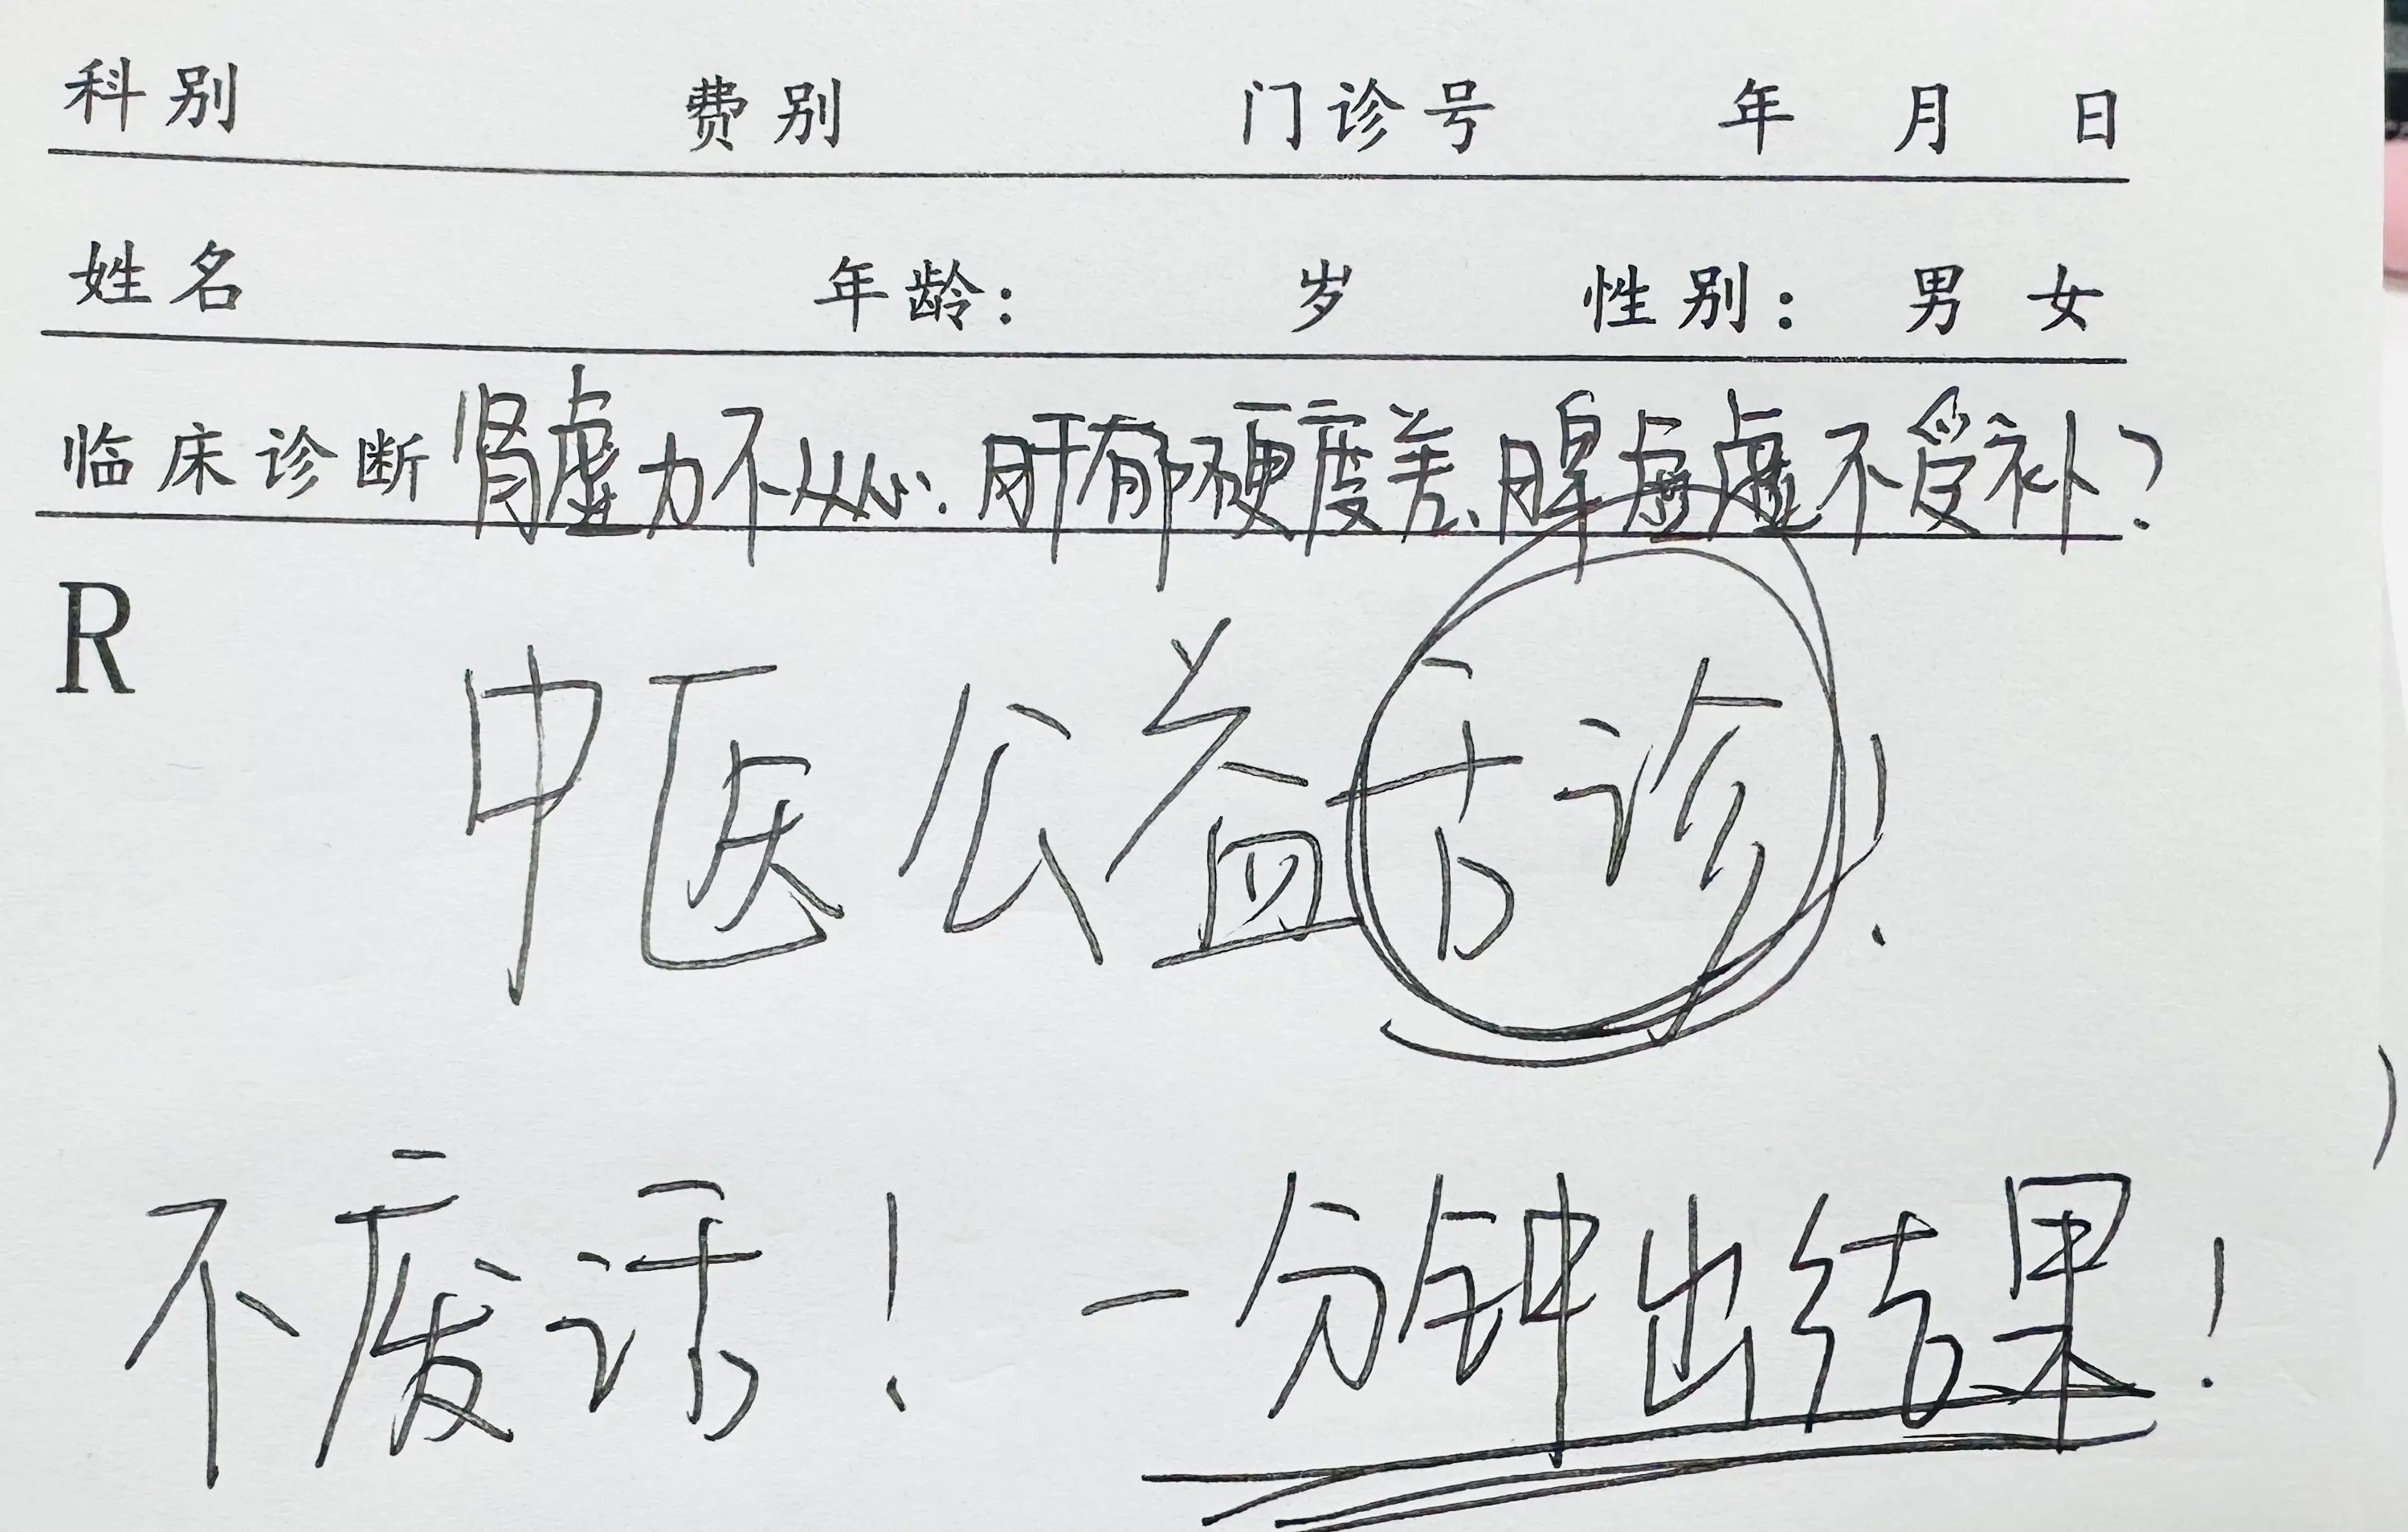 科别 费别 门诊号 年 月 日
姓名 年龄： 岁 性别： 男 女
临床诊断 肾虚力不从心、肝郁硬度差、脾虚虚不受补？
R
中医公益舌诊！
不废话！ 一分钟出结果！